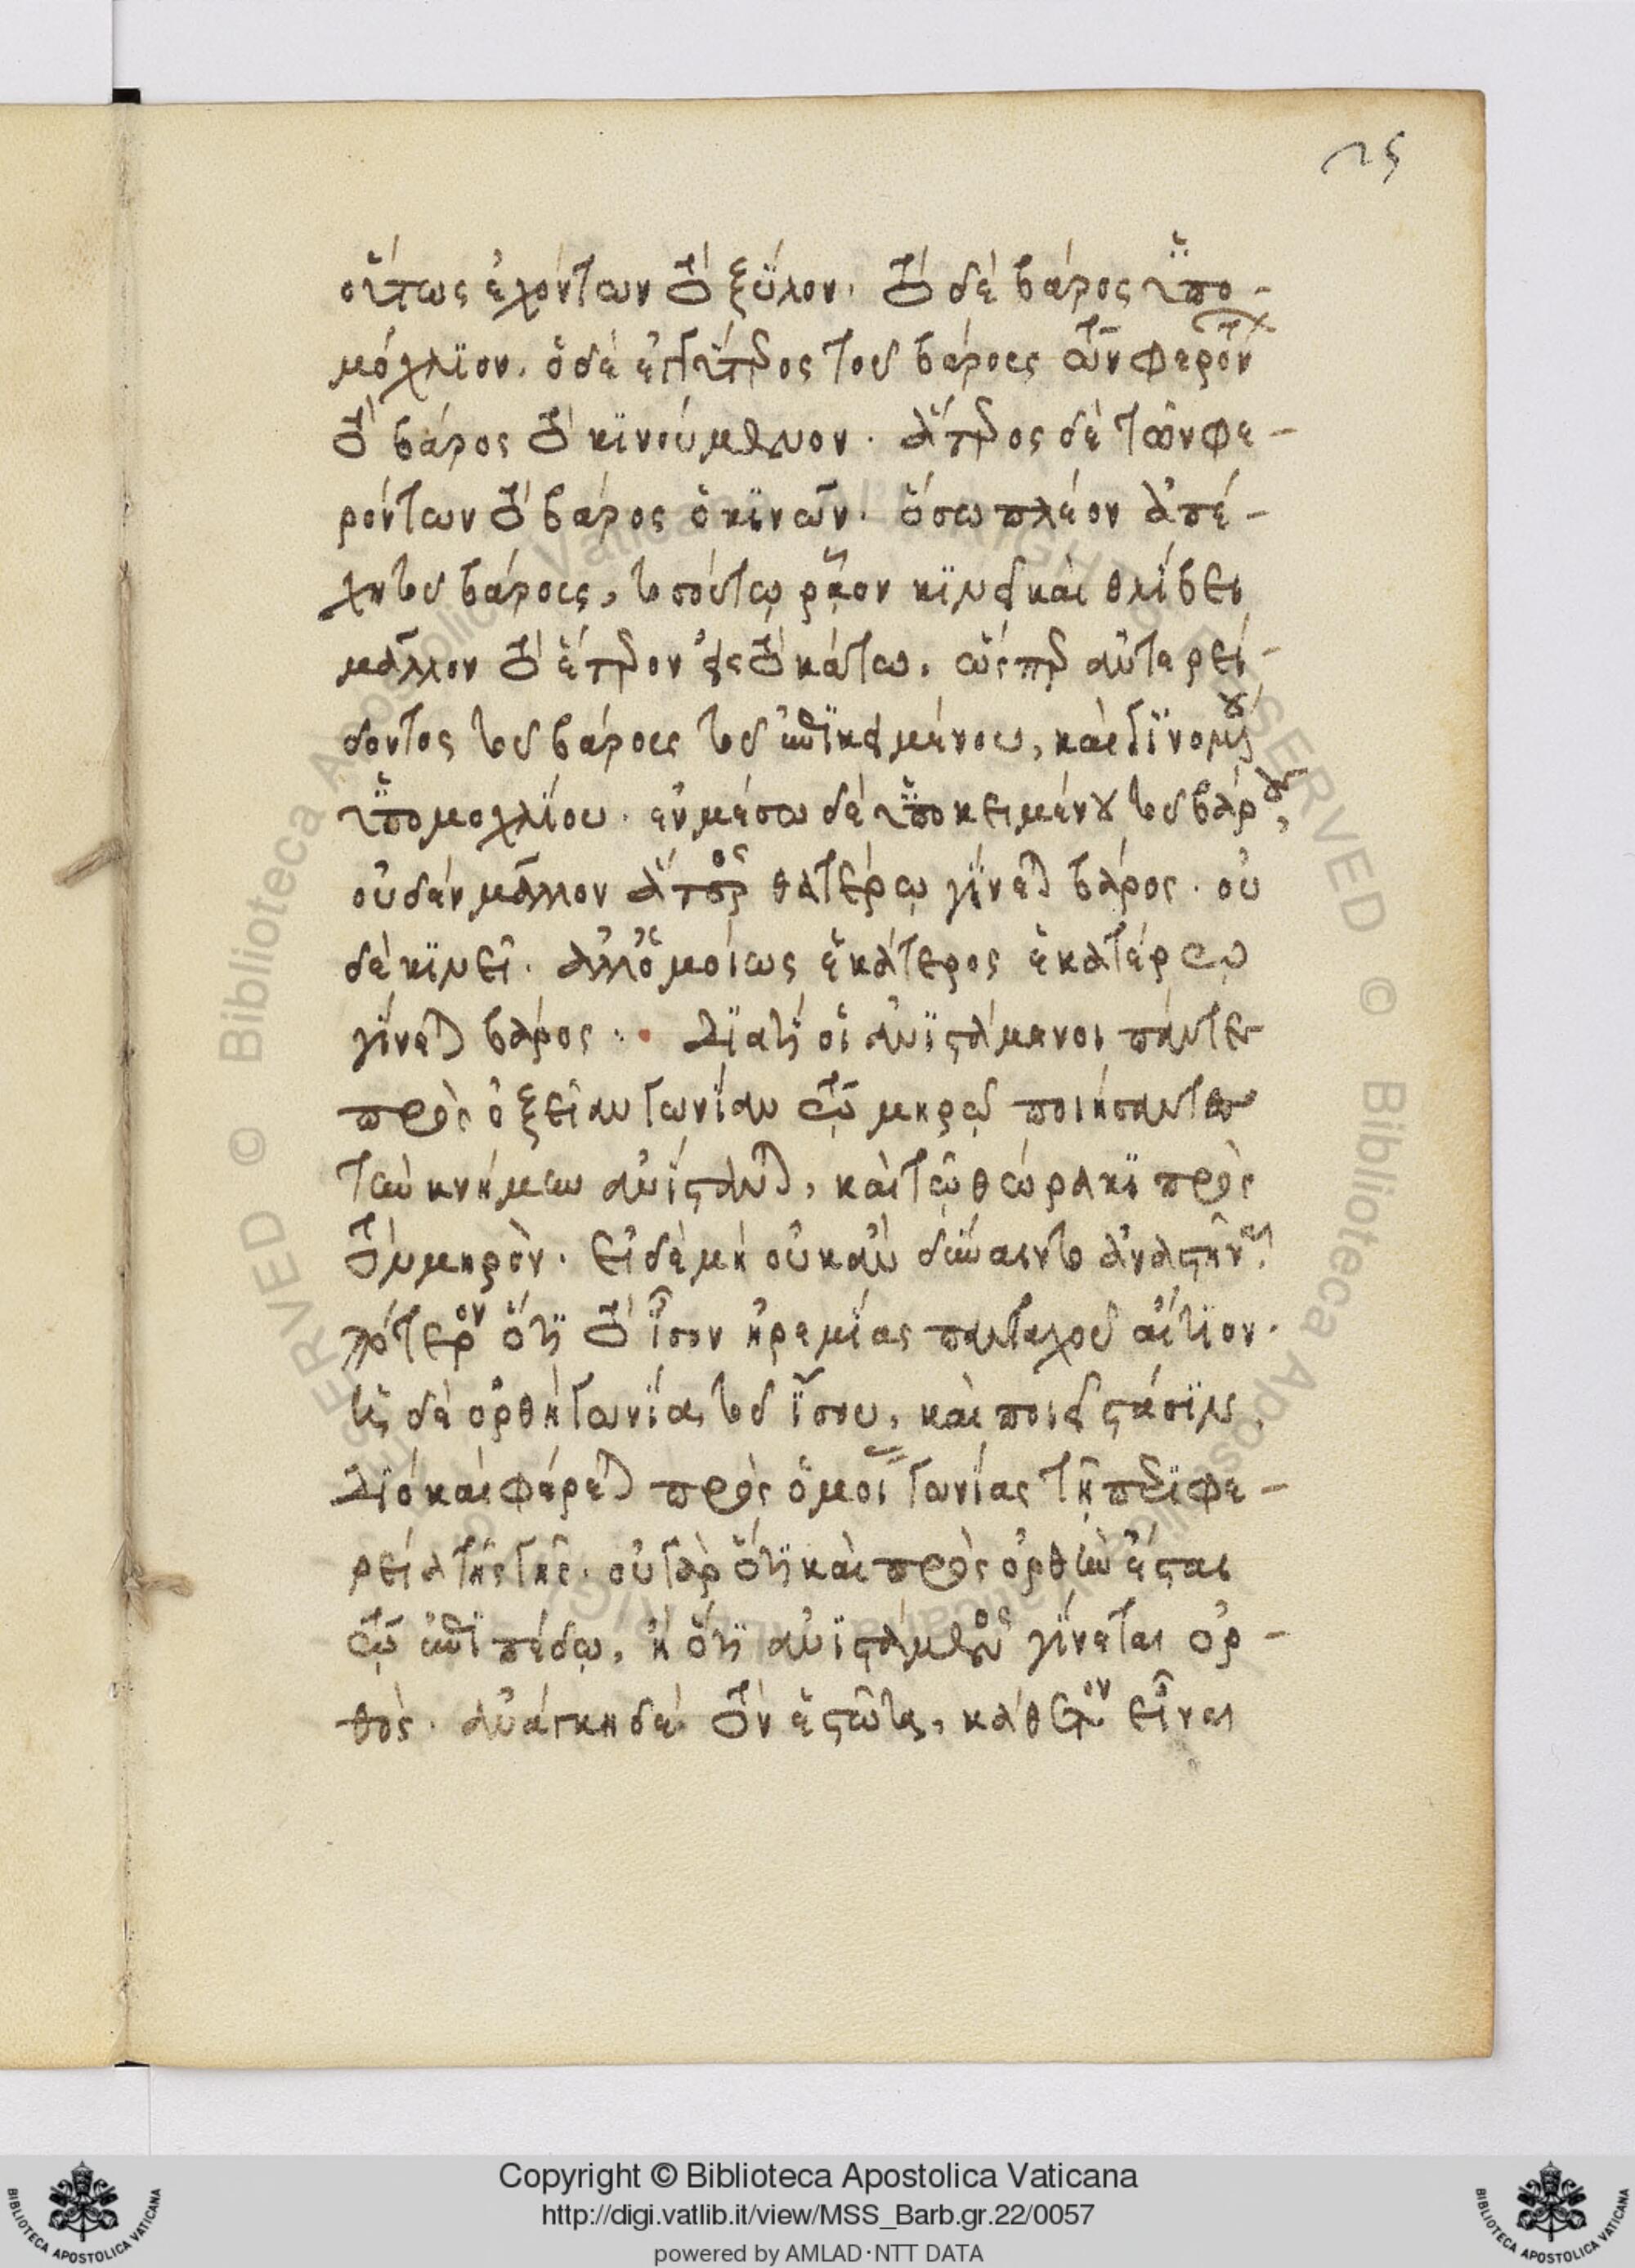 25
οὕτως ἐχόντων τὸ ξύλον. τὸ δὲ βάρος ὑπο-
μόχλϊον. ὁ δὲ ἕτερος τοῦ βάρους τῶν φερόντων
τὸ βάρος τὸ κϊνούμενον. ἅτερος δὲ τῶν φε-
ρόντων τὸ βάρος ὁ κϊνῶν. ὅσω πλέον ἀπέ-
χη τοῦ βάρους, τοσούτῳ ρᾷον κϊνεῖ καὶ θλίβει
μᾶλλον τὸ ἕτερον εἰς τὸ κάτω. ὥσπερ ἀντερεί-
δοντος τοῦ βάρους τοῦ ἐπϊκειμένου, καὶ γϊνομένου
ὑπομοχλίου. ἐν μέσω δὲ ὑποκειμένου τοῦ βάρους,
οὐδὲν μᾶλλον ἅτερος θατέρῳ γίνεται βάρος. οὐ
δὲ κϊνεῖ. ἀλλ' ὁμοίως ἑκάτερος ἑκατέρῳ
γίνεται βάρος. Διατί οἱ ἀνϊστάμενοι πάντες
πρὸς ὀξεῖαν γωνίαν τῷ μηρῷ ποιήσαντες
τὴν κνήμην ἀνίστανται, καὶ τῷ θώρακϊ πρὸς
τὸν μηρόν. εἰ δὲ μὴ οὐκ ἂν δύναιντο ἀναστῆναι.
πότερον ὅτι τὸ ἴσον ἠρεμίας πανταχοῦ αἴτϊον.
ἡ δὲ ὀρθὴ γωνία, τοῦ ἴσου, καὶ ποιεῖ στάσϊν.
διὸ καὶ φέρεται πρὸς ὁμοίας γωνίας τῆ περϊφε-
ρείᾳ τῆς γῆς. οὐ γὰρ ὅτι καὶ πρὸς ὀρθὴν ἔσται
τῷ ἐπϊπέδῳ, ἢ ὅτι ἀνϊστάμενος γίνεται ὀρ-
θός. ἀνάγκη δὲ τὸν ἑστῶτα, κάθετον εἶναι
Copyright © Biblioteca Apostolica Vaticana
http://digi.vatlib.it/view/MSS_Barb.gr.22/0057
powered by AMLAD·NTT DATA